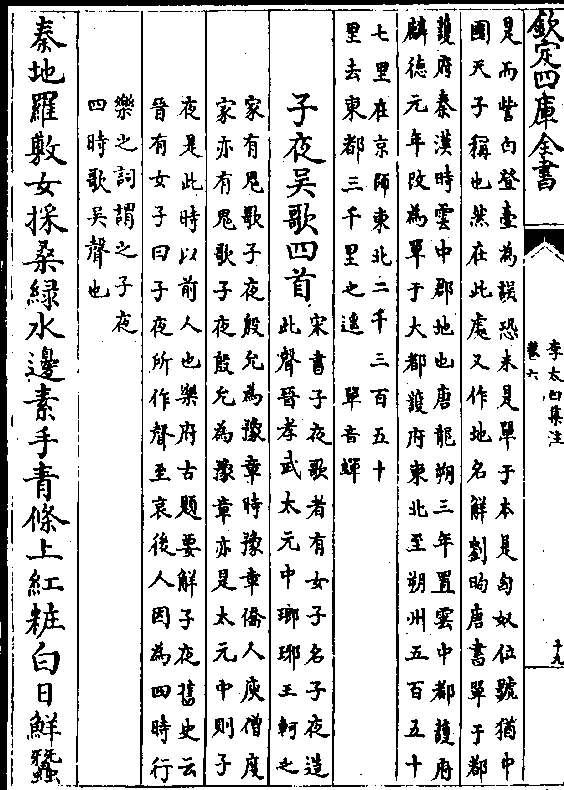 欽定四庫全書
李太白集注
卷六
十九
是而訾白登臺為誤恐未是單于本是匈奴位號猶中
國天子稱也然在此處又作地名解劉昫唐書單于都
護府秦漢時雲中郡地也唐龍朔三年置雲中都護府
麟德元年改為單于大都護府東北至朔州五百五十
七里在京師東北二千三百五十
里去東都三千里也逺 單音蟬
子夜吳歌四首
宋書子夜歌者有女子名子夜造
此聲晉孝武太元中瑯琊王軻之
家有鬼歌子夜殷允為豫章時豫章僑人庾僧度
家亦有鬼歌子夜殷允為豫章亦是太元中則子
夜是此時以前人也樂府古題要解子夜舊史云
晉有女子曰子夜所作聲至哀後人因為四時行
樂之詞謂之子夜
四時歌吳聲也
秦地羅敷女採桑緑水邊素手青條上紅粧白日鮮蠶